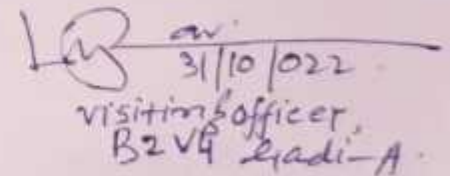 31/10/022
visiting officer,
B2V4 Gadi-A.